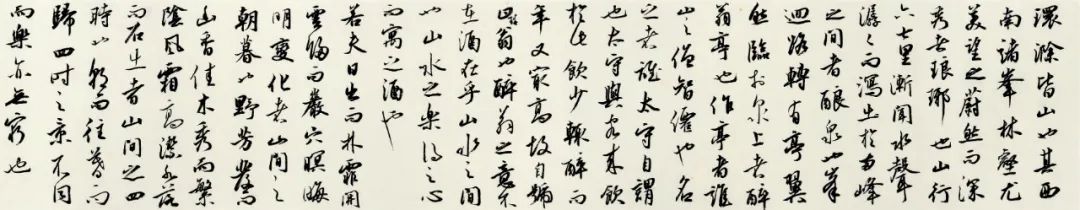 環滁皆山也其西
南諸峯林壑尤
美望之蔚然而深
秀者琅琊也山行
六七里漸聞水聲
潺々而瀉出於兩峰
之間者釀泉也峯
迴路轉有亭翼
然臨於泉上者醉
翁亭也作亭者誰
山之僧智僊也名
之者誰太守自謂
也太守與客來飲
於此飲少輒醉而
年又最高故自號
曰醉翁也醉翁之意不
在酒在乎山水之間
也山水之樂得之心
而寓之酒也
若夫日出而林霏開
雲歸而巖穴暝晦
明變化者山間之
朝暮也野芳發而
幽香佳木秀而繁
陰風霜高潔水落
而石出者山間之四
時也朝而往暮而
歸四時之景不同
而樂亦無窮也